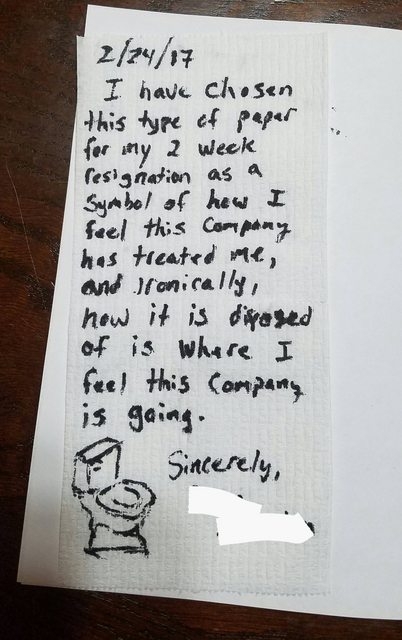 2/24/17
I have chosen
this type of paper
for my 2 week
resignation as a
symbol of how I
feel this Company
has treated me,
and ironically,
how it is disposed
of is where I
feel this Company
is going.
Sincerely,